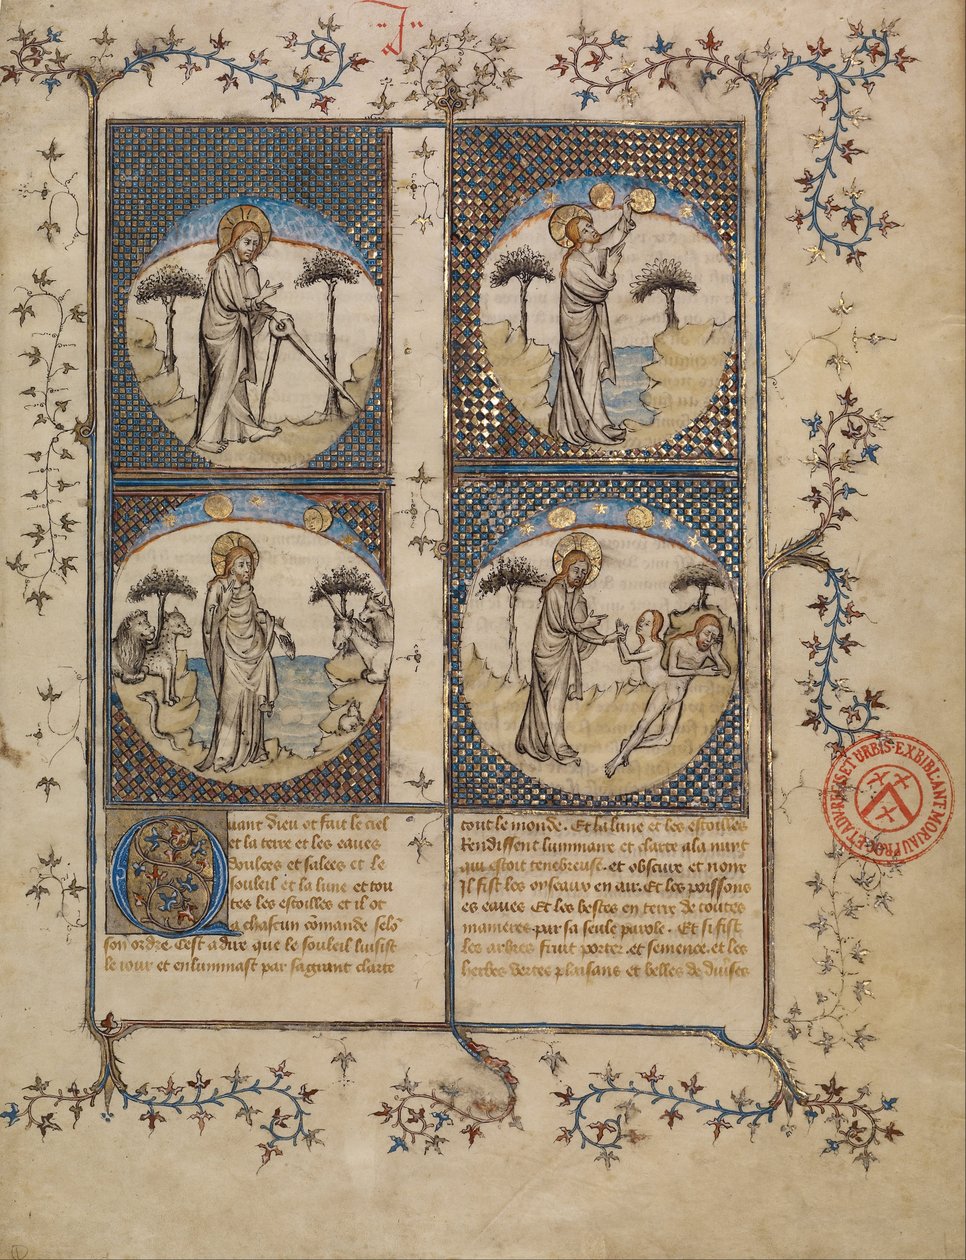 J
Quant dieu ot fait le ciel
et la terre et les eaues
doulces et salees et le
souleil et la lune et tou
tes les estoilles et il ot
a chascun cõmande selõ
son ordre. Cest a dire que le souleil luisist
le iour et enluminast par sa grant clarte
tout le monde. Et la lune et les estoilles
Rendissent luminaire et clarte a la nuyt
qui estoit tenebreuse. et obscure et noire
Il fist les oyseaux en air. Et les poissons
es eaues Et les bestes en terre de toutes
manieres par sa seule parole. Et si fist
les arbres fruit porter. et semence. et les
herbes vertes plaisans et belles de diũses